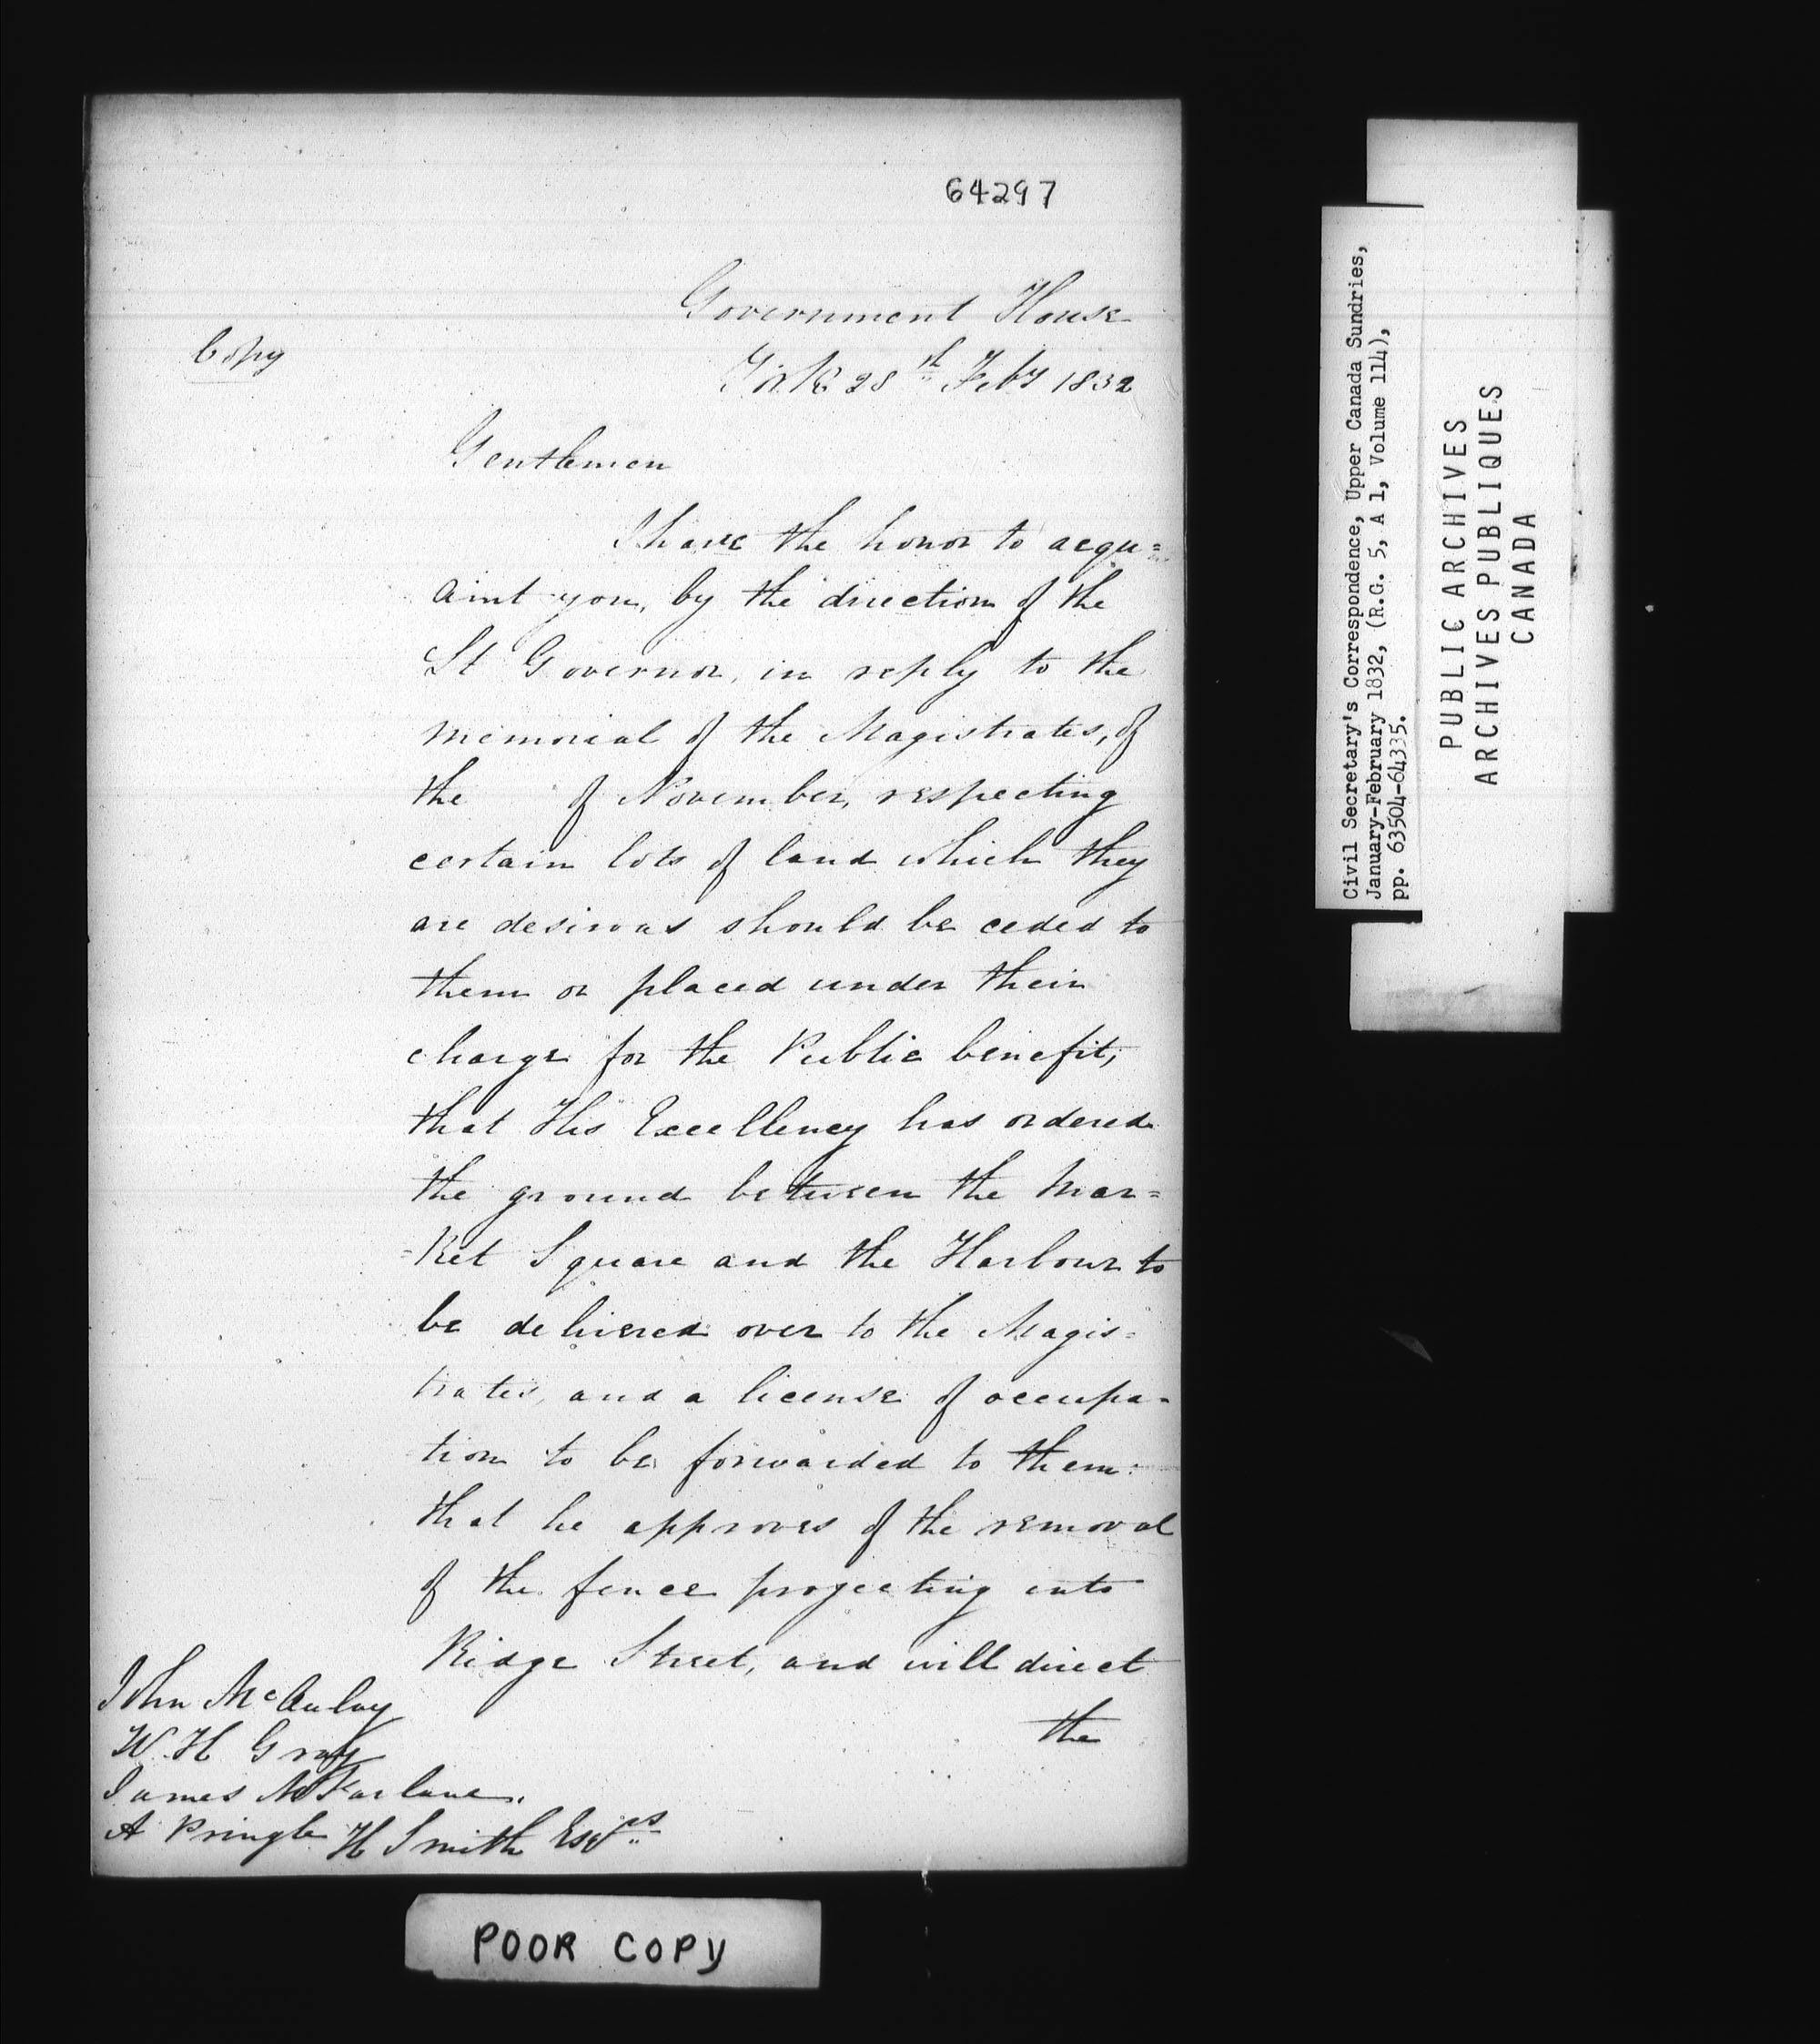 64297
Government House
Copy
York 28th Feby 1832
Gentlemen
I have the honor to acqu=
aint you, by the direction of the
Lt Governor, in reply to the
memorial of the Magistrates, of
the of November, respecting
certain lots of land which they
are desirous should be ceded to
them or placed under their
charge for the Public benefit,
that His Excellency has ordered
the ground between the Mar=
=ket Square and the Harbour to
be delivered over to the Magis=
trates, and a license of occupa=
tion to be forwarded to them:
that he approves of the removal
of the fence projecting into
Ridge Street, and will direct
the
John McAulay
W. H Gray
James McFarlane.
A Pringle H Smith Esqrs
POOR COPY
Civil Secretary's Correspondence, Upper Canada Sundries,
January-February 1832, (R.G. 5, A 1, Volume 114),
pp. 63504-64335.
PUBLIC ARCHIVES
ARCHIVES PUBLIQUES
CANADA